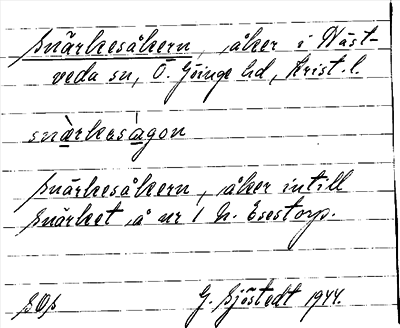 Snärkesåkern, åker i Wäst-
veda sn, Ö. Göinge hd, Krist. l.
snàrkaságon
Snärkesåkern, åker intill
Snärket å nr 1 N. Esestorp.
G. Sjöstedt 1944.